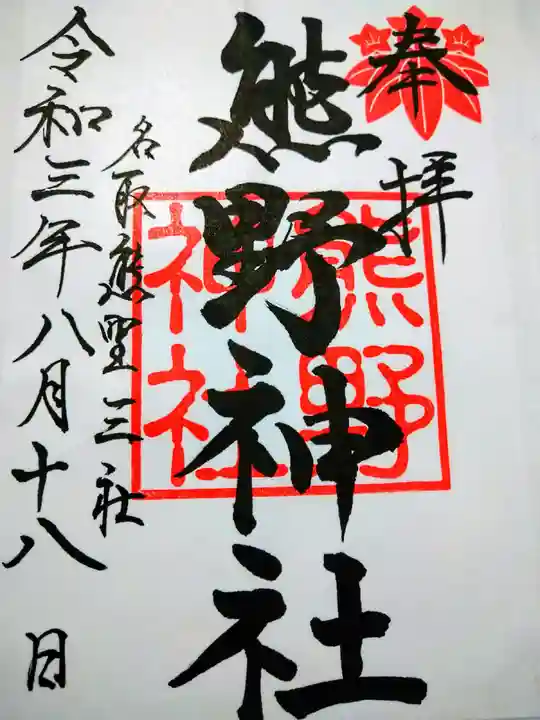 奉拝
熊野神社
熊野
神社
名取熊野三社
令和三年八月十八日